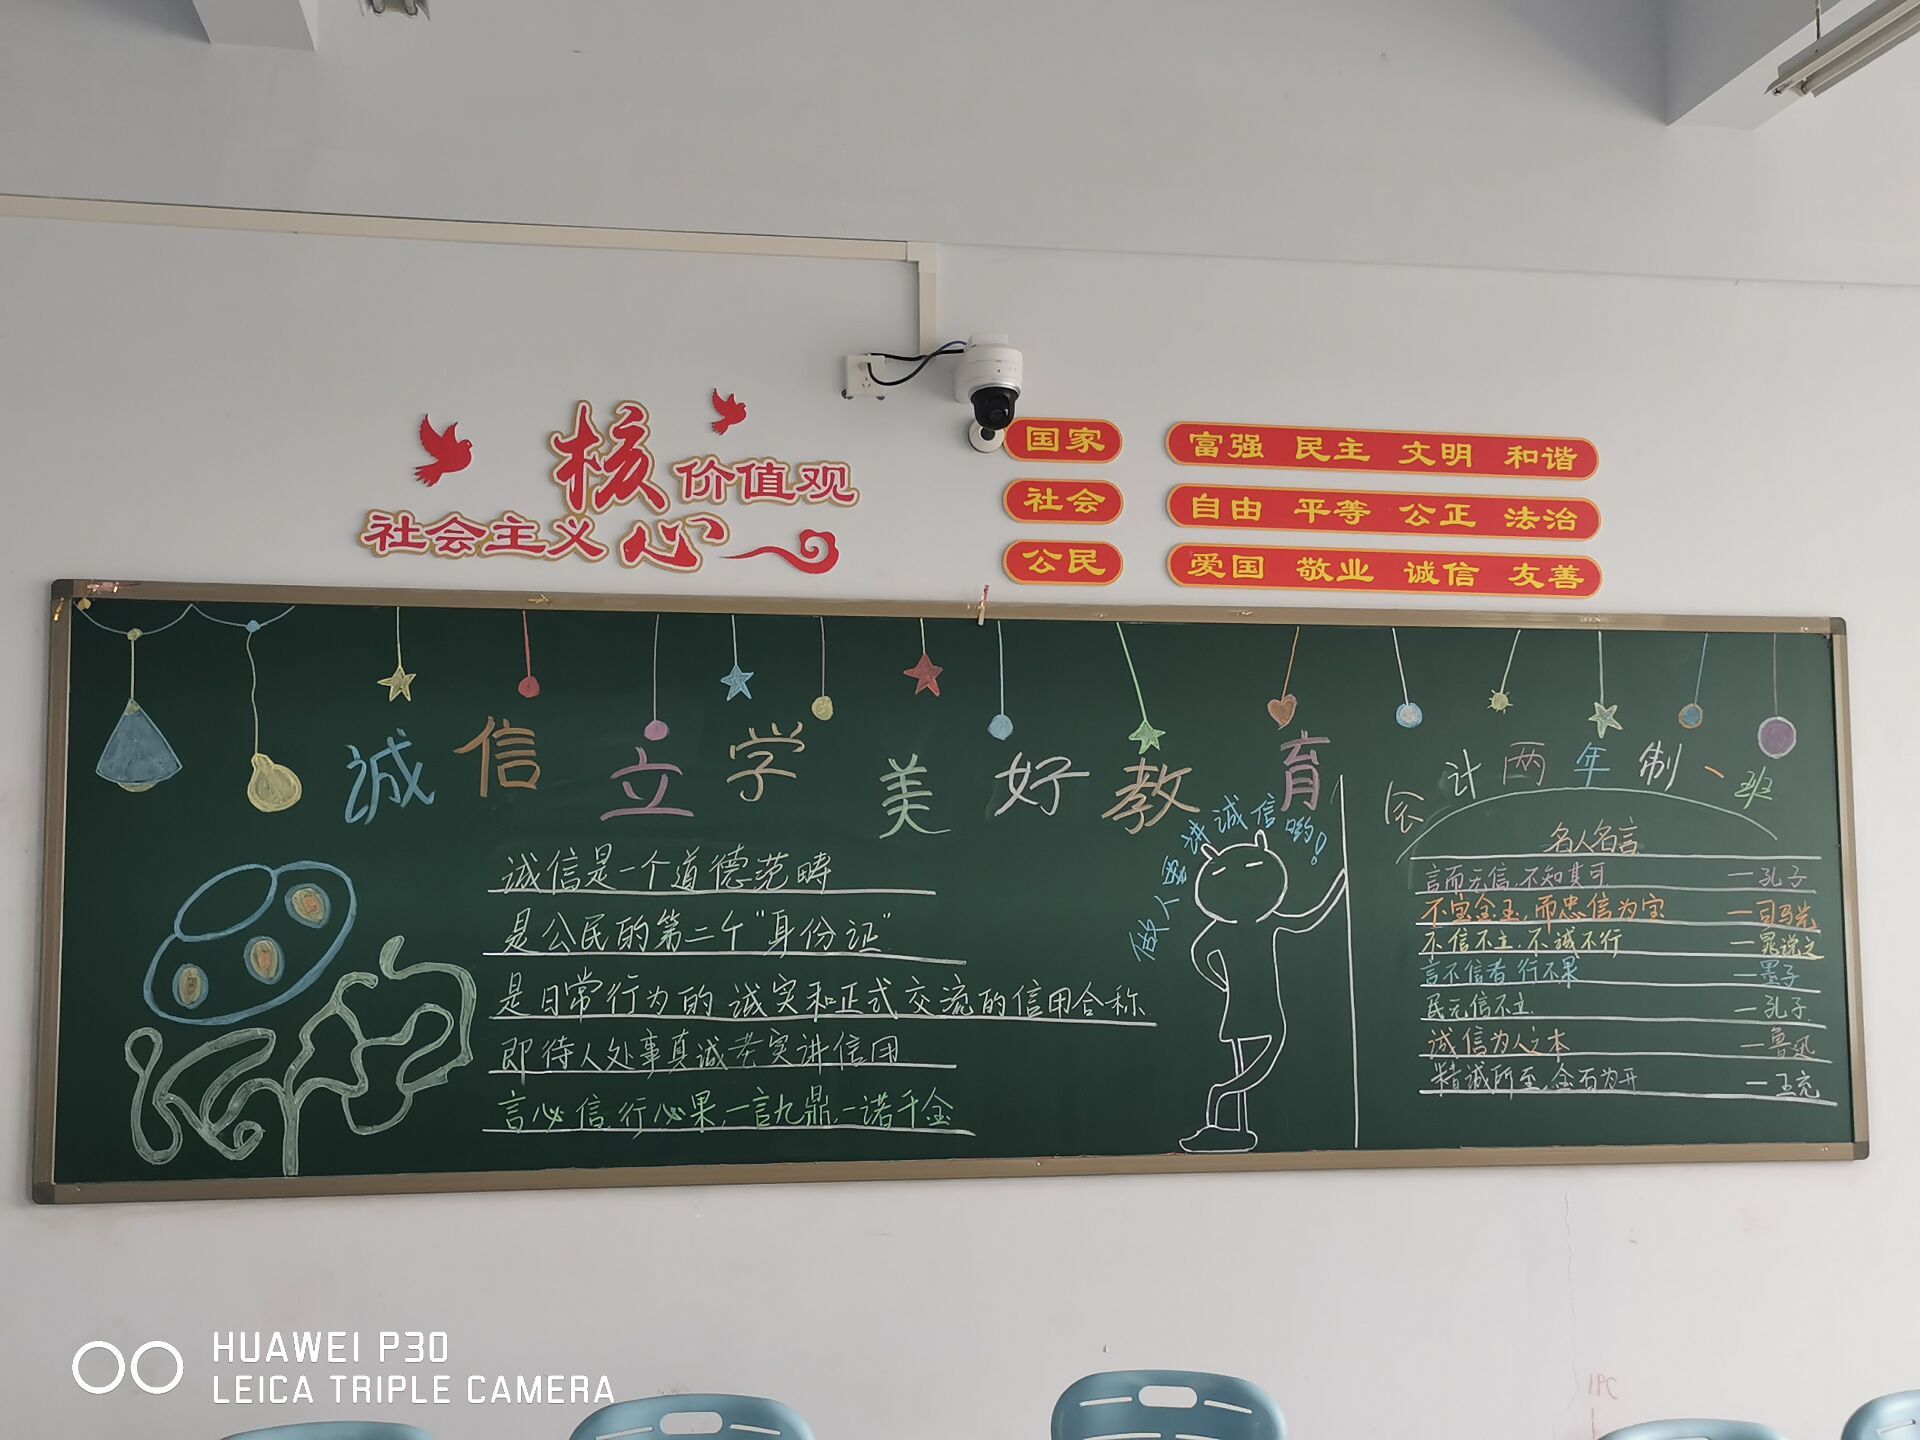 核
价值观
社会主义心
国家 富强 民主 文明 和谐
社会 自由 平等 公正 法治
公民 爱国 敬业 诚信 友善
诚信立学美好教育
诚信是一个道德范畴
是公民的第二个"身份证"
是日常行为的诚实和正式交流的信用合称
即待人处事真诚老实讲信用
言必信,行必果,一言九鼎,一诺千金
做人要讲诚信哟!
会计两年制一班
名人名言
言而无信,不知其可 —孔子
不宝金玉,而忠信为宝 —司马光
不信不立,不诚不行 —晁说之
言不信者 行不果 —墨子
民无信不立 —孔子
诚信为人之本 —鲁迅
精诚所至,金石为开 —王充
HUAWEI P30
LEICA TRIPLE CAMERA
IPC